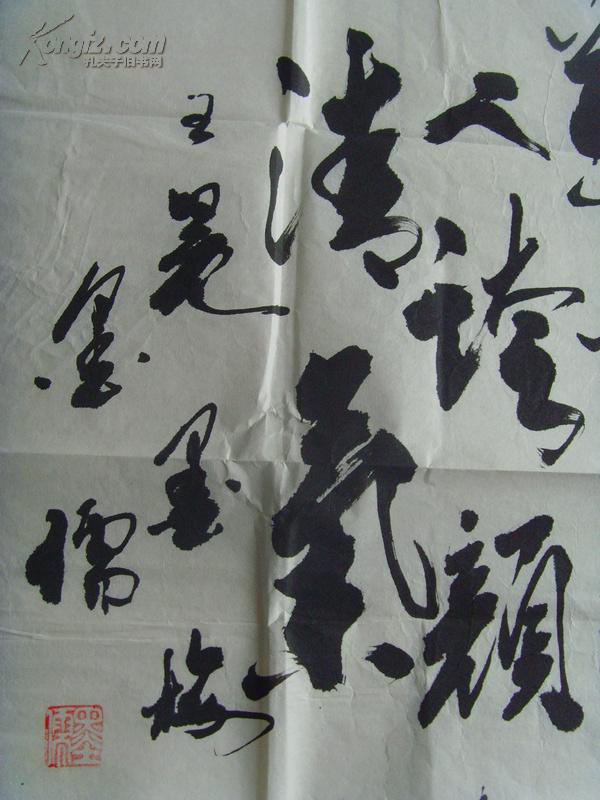 人誇顏
清氣
王冕墨梅
墨儒
Kongfz.com
孔夫子旧书网